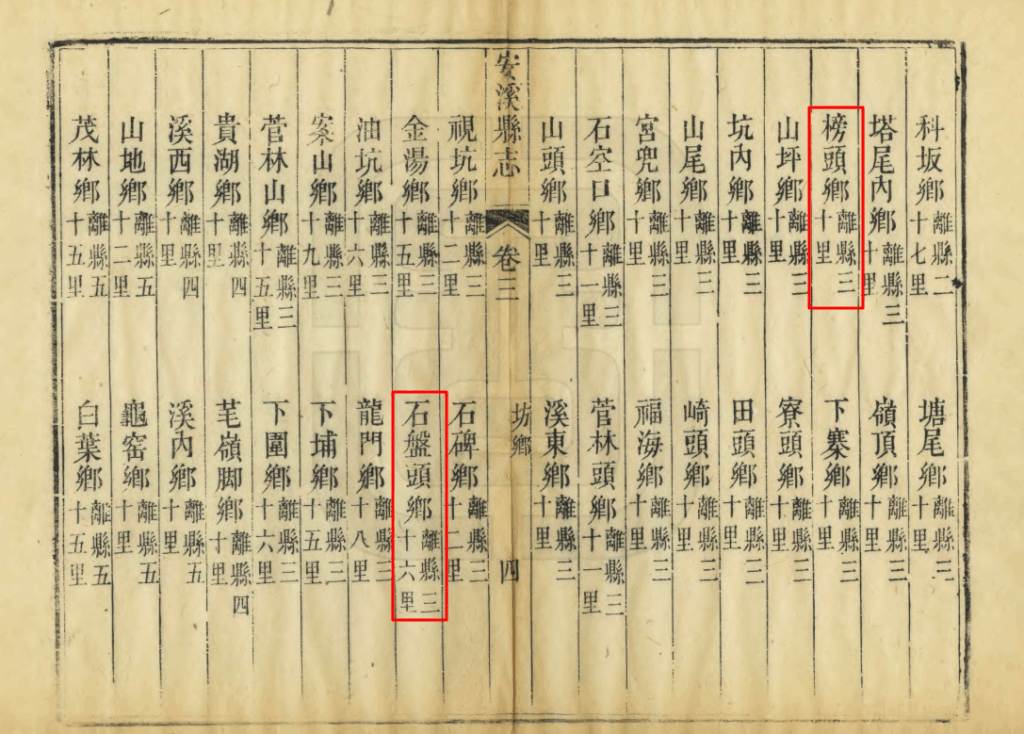 科坂鄉離縣二十七里
塘尾鄉離縣三十里
塔尾內鄉離縣三十里
嶺頂鄉離縣三十里
榜頭鄉離縣三十里
下寨鄉離縣三十里
山坪鄉離縣三十里
寮頭鄉離縣三十里
坑內鄉離縣三十里
田頭鄉離縣三十里
山尾鄉離縣三十里
崎頭鄉離縣三十里
宮兜鄉離縣三十里
福海鄉離縣三十里
石空口鄉離縣三十一里
菅林頭鄉離縣三十一里
山頭鄉離縣三十里
溪東鄉離縣三十里
安溪縣志
卷三
坊鄉
四
視坑鄉離縣三十二里
石碑鄉離縣三十二里
金湯鄉離縣三十五里
石盤頭鄉離縣三十六里
油坑鄉離縣三十六里
龍門鄉離縣三十八里
案山鄉離縣三十九里
下埔鄉離縣三十五里
菅林山鄉離縣三十五里
下圍鄉離縣三十六里
貴湖鄉離縣四十里
芼嶺脚鄉離縣四十里
溪西鄉離縣四十里
溪內鄉離縣五十里
山地鄉離縣五十二里
龜窑鄉離縣五十里
茂林鄉離縣五十五里
白葉鄉離縣五十五里